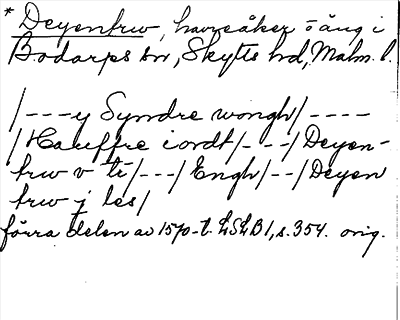 * Deyenfrw, havreåker o äng i
Bodarps sn, Skytts hd, Malm. l.
/---y Syndre wongh/----
/Hauffre iordt/---/Deyen-
frw v ti/---/Engh/--/Deyen
frw j les/
förra delen av 1570-t. LSLB1, s. 354. orig.